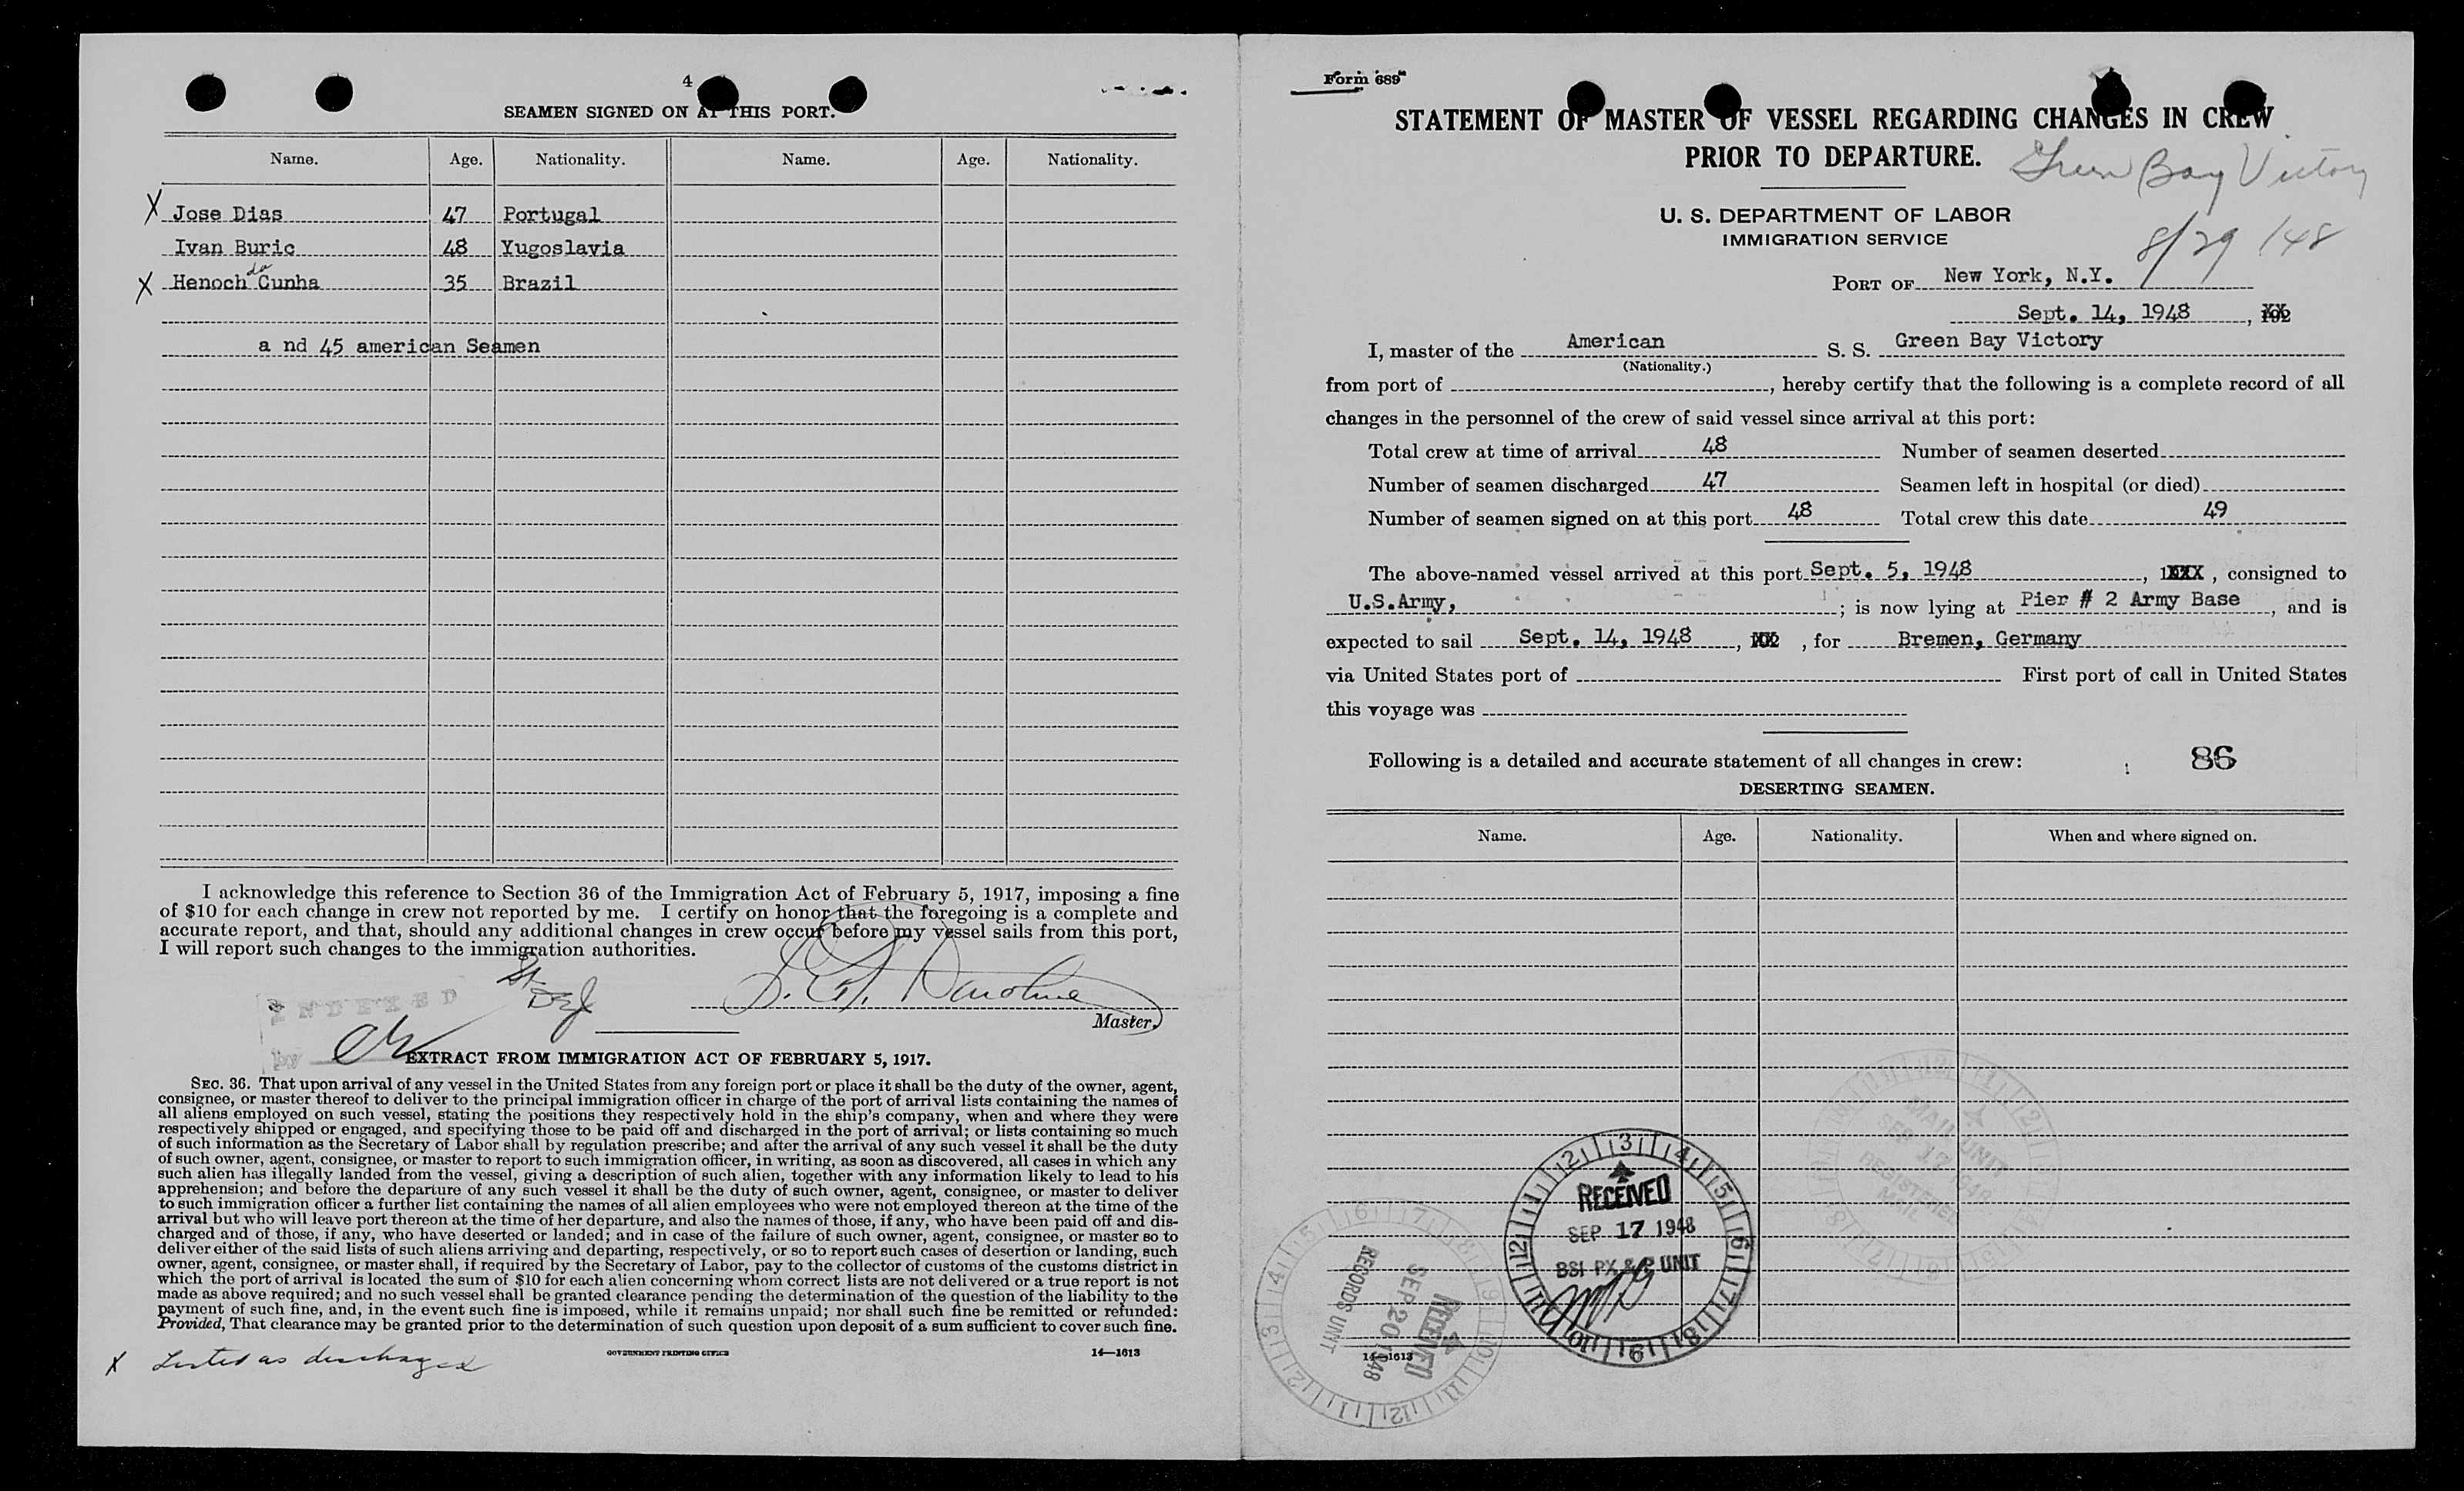 4
SEAMEN SIGNED ON AT THIS PORT.
Name. Age. Nationality. Name. Age. Nationality.
X Jose Dias 47 Portugal
Ivan Buric 48 Yugoslavia
X Henoch da Cunha 35 Brazil
a nd 45 american Seamen
I acknowledge this reference to Section 36 of the Immigration Act of February 5, 1917, imposing a fine
of $10 for each change in crew not reported by me. I certify on honor that the foregoing is a complete and
accurate report, and that, should any additional changes in crew occur before my vessel sails from this port,
I will report such changes to the immigration authorities.
Master.
INDEXED
by
EXTRACT FROM IMMIGRATION ACT OF FEBRUARY 5, 1917.
SEC. 36. That upon arrival of any vessel in the United States from any foreign port or place it shall be the duty of the owner, agent,
consignee, or master thereof to deliver to the principal immigration officer in charge of the port of arrival lists containing the names of
all aliens employed on such vessel, stating the positions they respectively hold in the ship's company, when and where they were
respectively shipped or engaged, and specifying those to be paid off and discharged in the port of arrival; or lists containing so much
of such information as the Secretary of Labor shall by regulation prescribe; and after the arrival of any such vessel it shall be the duty
of such owner, agent, consignee, or master to report to such immigration officer, in writing, as soon as discovered, all cases in which any
such alien has illegally landed from the vessel, giving a description of such alien, together with any information likely to lead to his
apprehension; and before the departure of any such vessel it shall be the duty of such owner, agent, consignee, or master to deliver
to such immigration officer a further list containing the names of all alien employees who were not employed thereon at the time of the
arrival but who will leave port thereon at the time of her departure, and also the names of those, if any, who have been paid off and dis-
charged and of those, if any, who have deserted or landed; and in case of the failure of such owner, agent, consignee, or master so to
deliver either of the said lists of such aliens arriving and departing, respectively, or so to report such cases of desertion or landing, such
owner, agent, consignee, or master shall, if required by the Secretary of Labor, pay to the collector of customs of the customs district in
which the port of arrival is located the sum of $10 for each alien concerning whom correct lists are not delivered or a true report is not
made as above required; and no such vessel shall be granted clearance pending the determination of the question of the liability to the
payment of such fine, and, in the event such fine is imposed, while it remains unpaid; nor shall such fine be remitted or refunded:
Provided, That clearance may be granted prior to the determination of such question upon deposit of a sum sufficient to cover such fine.
GOVERNMENT PRINTING OFFICE 14—1613
X Listed as discharged
Form 689
STATEMENT OF MASTER OF VESSEL REGARDING CHANGES IN CREW
PRIOR TO DEPARTURE.
Green Bay Victory
U. S. DEPARTMENT OF LABOR
IMMIGRATION SERVICE
8/29/48
PORT OF New York, N.Y.
Sept. 14, 1948, 192
I, master of the American S. S. Green Bay Victory
(Nationality.)
from port of , hereby certify that the following is a complete record of all
changes in the personnel of the crew of said vessel since arrival at this port:
Total crew at time of arrival 48 Number of seamen deserted
Number of seamen discharged 47 Seamen left in hospital (or died)
Number of seamen signed on at this port 48 Total crew this date 49
The above-named vessel arrived at this port Sept. 5, 1948, 1XXX, consigned to
U.S.Army, ; is now lying at Pier # 2 Army Base, and is
expected to sail Sept. 14, 1948, 192, for Bremen, Germany
via United States port of First port of call in United States
this voyage was
Following is a detailed and accurate statement of all changes in crew:
86
DESERTING SEAMEN.
Name. Age. Nationality. When and where signed on.
MAIL UNIT
SEP 17 1948
REGISTERED
MAIL
RECEIVED
SEP 17 1948
BSI PX & P UNIT
RECEIVED
SEP 20 1948
RECORDS UNIT
14—1613